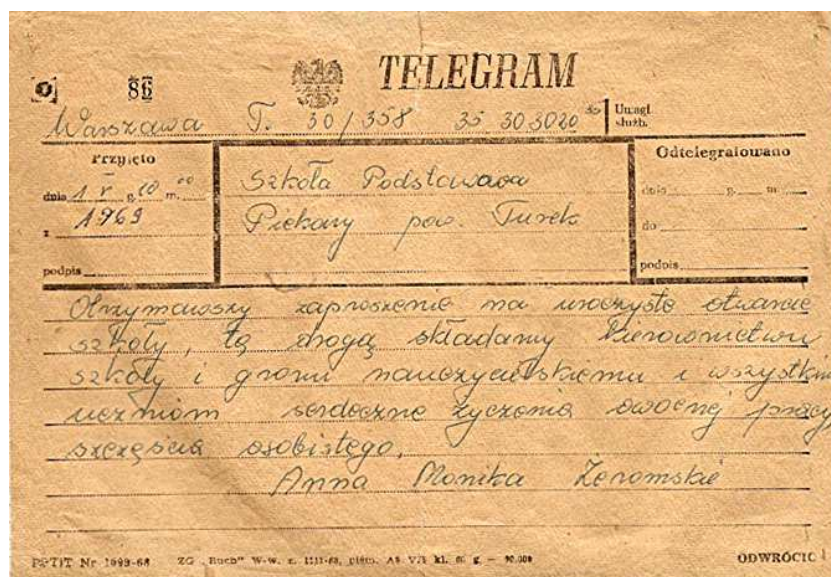 TELEGRAM
86
Warszawa T. 30/358 35 30 3020
Uwagi
służb.
Przyjęto
dnia 1 V g. 10 m. 00
z 1969
podpis
Szkoła Podstawowa
Piekary pow. Turek
Odtelegrafowano
dnia g. m.
do
podpis
Otrzymawszy zaproszenie na uroczyste otwarcie
szkoły, tą drogą składamy kierownictwu
szkoły i gronu nauczycielskiemu i wszystkim
uczniom serdeczne życzenia owocnej pracy
szczęścia osobistego.
Anna Monika Żeromskie
PPTiT Nr 1099-68 ZG „Ruch" W-w. z. 1111-68, piśm. A5 V/3 kl. 60 g — 90.000
ODWRÓCIĆ